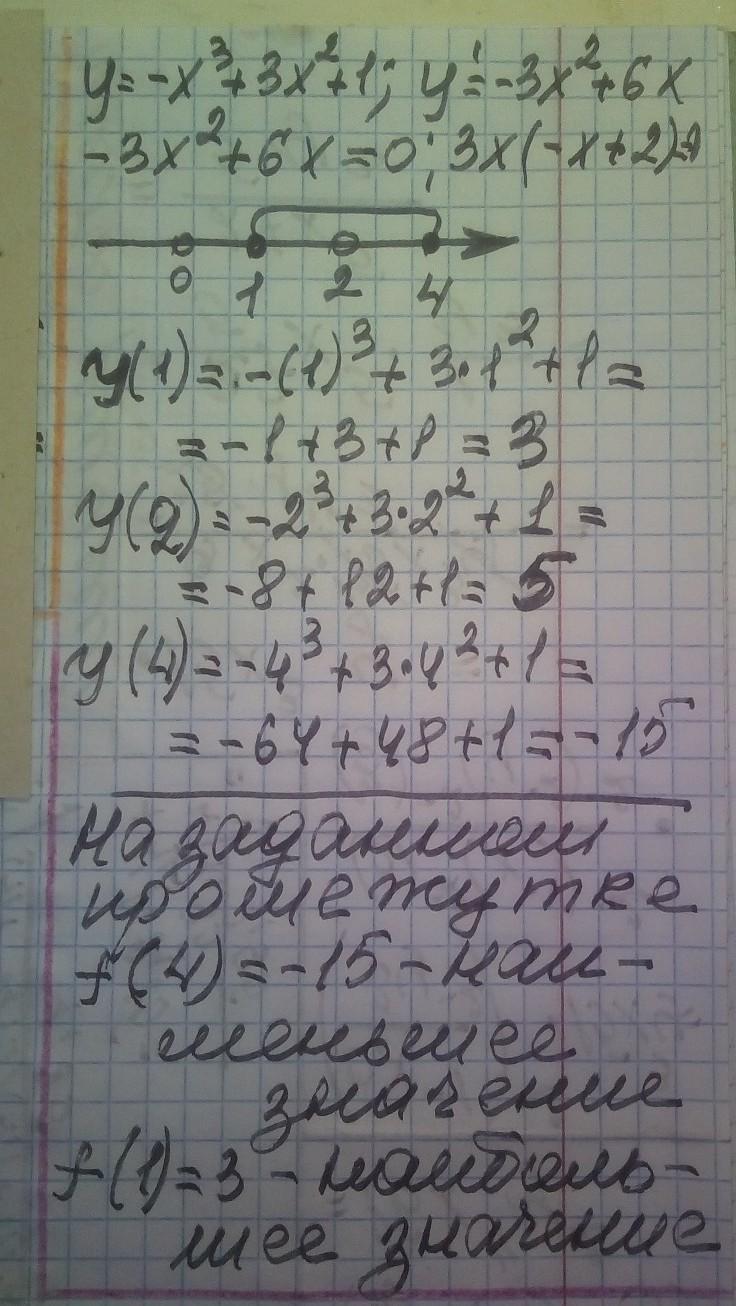 y=-x³+3x²+1; y'=-3x²+6x
-3x²+6x=0; 3x(-x+2)=
0 1 2 4
y(1)=-(1)³+3·1²+1=
=-1+3+1=3
y(2)=-2³+3·2²+1=
=-8+12+1=5
y(4)=-4³+3·4²+1=
=-64+48+1=-15
На заданном
промежутке
f(4)=-15-наи-
меньшее
значение
f(1)=3-наиболь-
шее значение